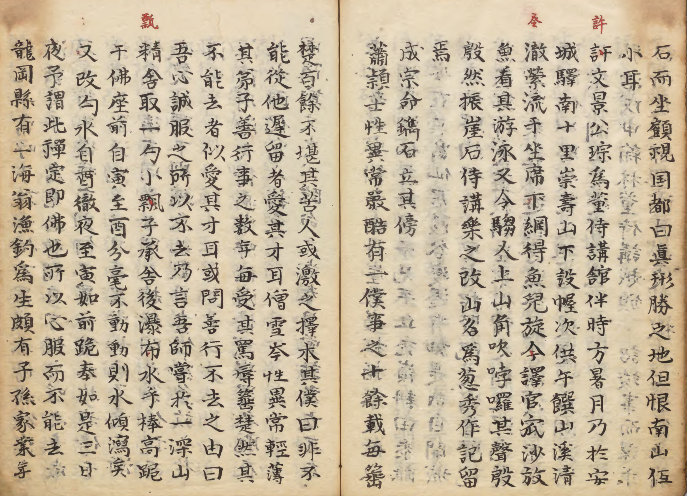 石而坐顧視国都白眞形勝之地但恨南山伍
小耳
許文景公琮爲莹侍講館伴時方暑月乃於安
城驛南十里崇壽山下設幄次供午饌山溪清
澈縈流于坐席下網得魚兒旋令譯官宬沙放
魚看其游泳又令騶人上山角吹哱囉其聲殷
殷然振崖石侍講樂之改山名爲葱秀作記留
焉
成宗命鐫石立其傍
蕭穎士性異常嚴酷有一僕事之十餘載每箠
楚百餘不堪其苦人或激之擇木其僕曰非不
能從他遲留者愛其才耳僧雪岑性異常輕薄
其弟子善行事之數年每受其罵辱箠楚然其
不能去者似愛其才耳或問善行不去之由曰
吾心誠服之所以不去乃言吾師嘗於一深山
精舍取一勺小瓢子承舍後瀑布水手棒高跪
于佛座前自寅至酉分毫不動動則水傾瀉矣
又改勺水自酉徹夜至寅如前跪奏如是三日
夜予謂此禪定即佛也所以心服而不能去
龍岡縣有一海翁漁釣爲生頗有子孫家業等
許
瓢